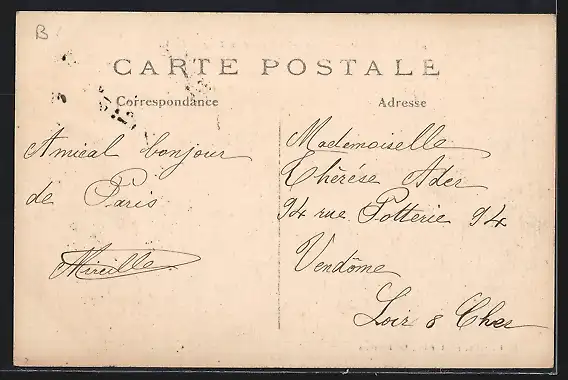 B
CARTE POSTALE
Correspondance
Adresse
Amical bonjour
de Paris
Mireille
Mademoiselle
Thérése Ader
94 rue Potterie 94
Vendôme
Loir & Cher